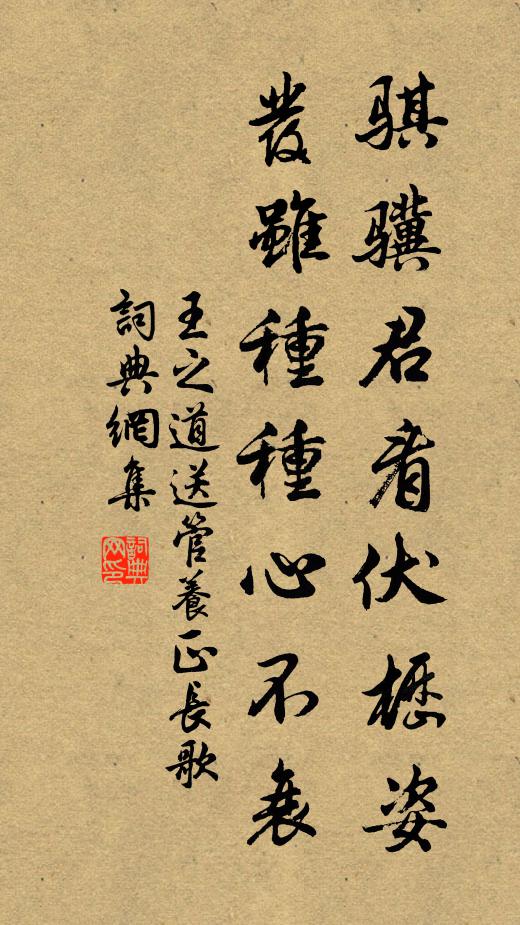 騏驥君看伏櫪姿
發雖種種心不衰
王之道送管養正長歌
詞典網集
詞典网印